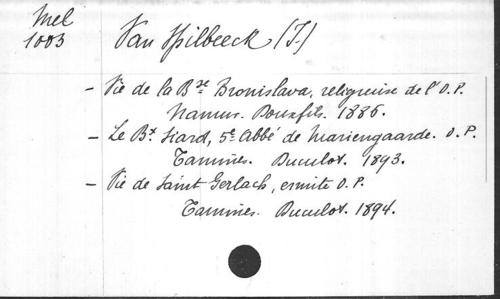 Mel
1003
Van Spilbeeck (I.)
- Vie de la Bse Bronislava, religieuse de l'O.P.
Namur. Douxfils. 1886.
- Le Bx Siard, 5e Abbé de Mariengaarde. O.P.
Tamines. Duculot. 1893.
- Vie de Saint Gerlach, ermite O.P.
Tamines. Duculot. 1894.